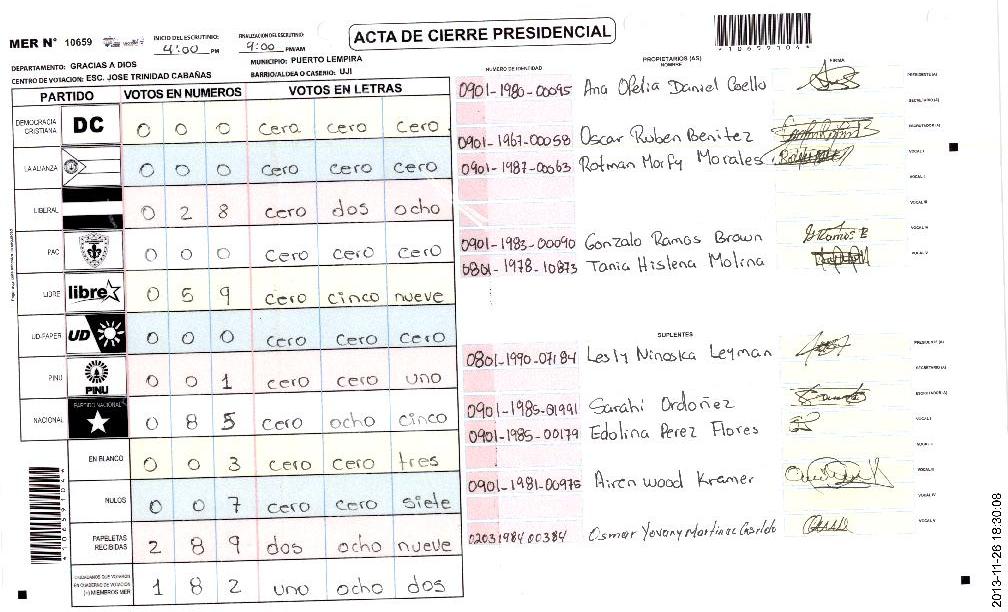 MER N° 10659
INICIO DEL ESCRUTINIO: 4:00 PM
FINALIZACION DEL ESCRUTINIO: 9:00 PM/AM
ACTA DE CIERRE PRESIDENCIAL
DEPARTAMENTO: GRACIAS A DIOS
MUNICIPIO: PUERTO LEMPIRA
CENTRO DE VOTACION: ESC. JOSE TRINIDAD CABAÑAS
BARRIO/ALDEA O CASERIO: UJI
PARTIDO VOTOS EN NUMEROS VOTOS EN LETRAS
DEMOCRACIA CRISTIANA DC 0 0 0 cero cero cero
LA ALIANZA 0 0 0 cero cero cero
LIBERAL 0 2 8 cero dos ocho
PAC 0 0 0 cero cero cero
LIBRE libre 0 5 9 cero cinco nueve
UD-FAPER UD 0 0 0 cero cero cero
PINU PINU 0 0 1 cero cero uno
NACIONAL PARTIDO NACIONAL 0 8 5 cero ocho cinco
EN BLANCO 0 0 3 cero cero tres
NULOS 0 0 7 cero cero siete
PAPELETAS RECIBIDAS 2 8 9 dos ocho nueve
CIUDADANOS QUE VOTARON EN CUADERNO DE VOTACION (+) MIEMBROS MER 1 8 2 uno ocho dos
NUMERO DE IDENTIDAD
PROPIETARIOS (AS)
NOMBRE
FIRMA
0901-1980-00095 Ana Ofelia Daniel Coello PRESIDENTE(A)
SECRETARIO(A)
0901-1967-00058 Oscar Ruben Benitez ESCRUTADOR(A)
0901-1987-00063 Rotman Morfy Morales VOCAL I
VOCAL II
VOCAL III
0901-1983-00090 Gonzalo Ramos Brown VOCAL IV
0801-1978-10873 Tania Hislena Molina VOCAL V
SUPLENTES
0801-1990-07184 Lesly Ninoska Leyman PRESIDENTE(A)
SECRETARIO(A)
0901-1985-01991 Sarahi Ordoñez ESCRUTADOR(A)
0901-1985-00179 Edolina Perez Flores VOCAL I
VOCAL II
0901-1981-00975 Airen wood Kramer VOCAL III
VOCAL IV
0203 1984 00384 Osmar Yovany Martinez VOCAL V
2013-11-26 18:30:08